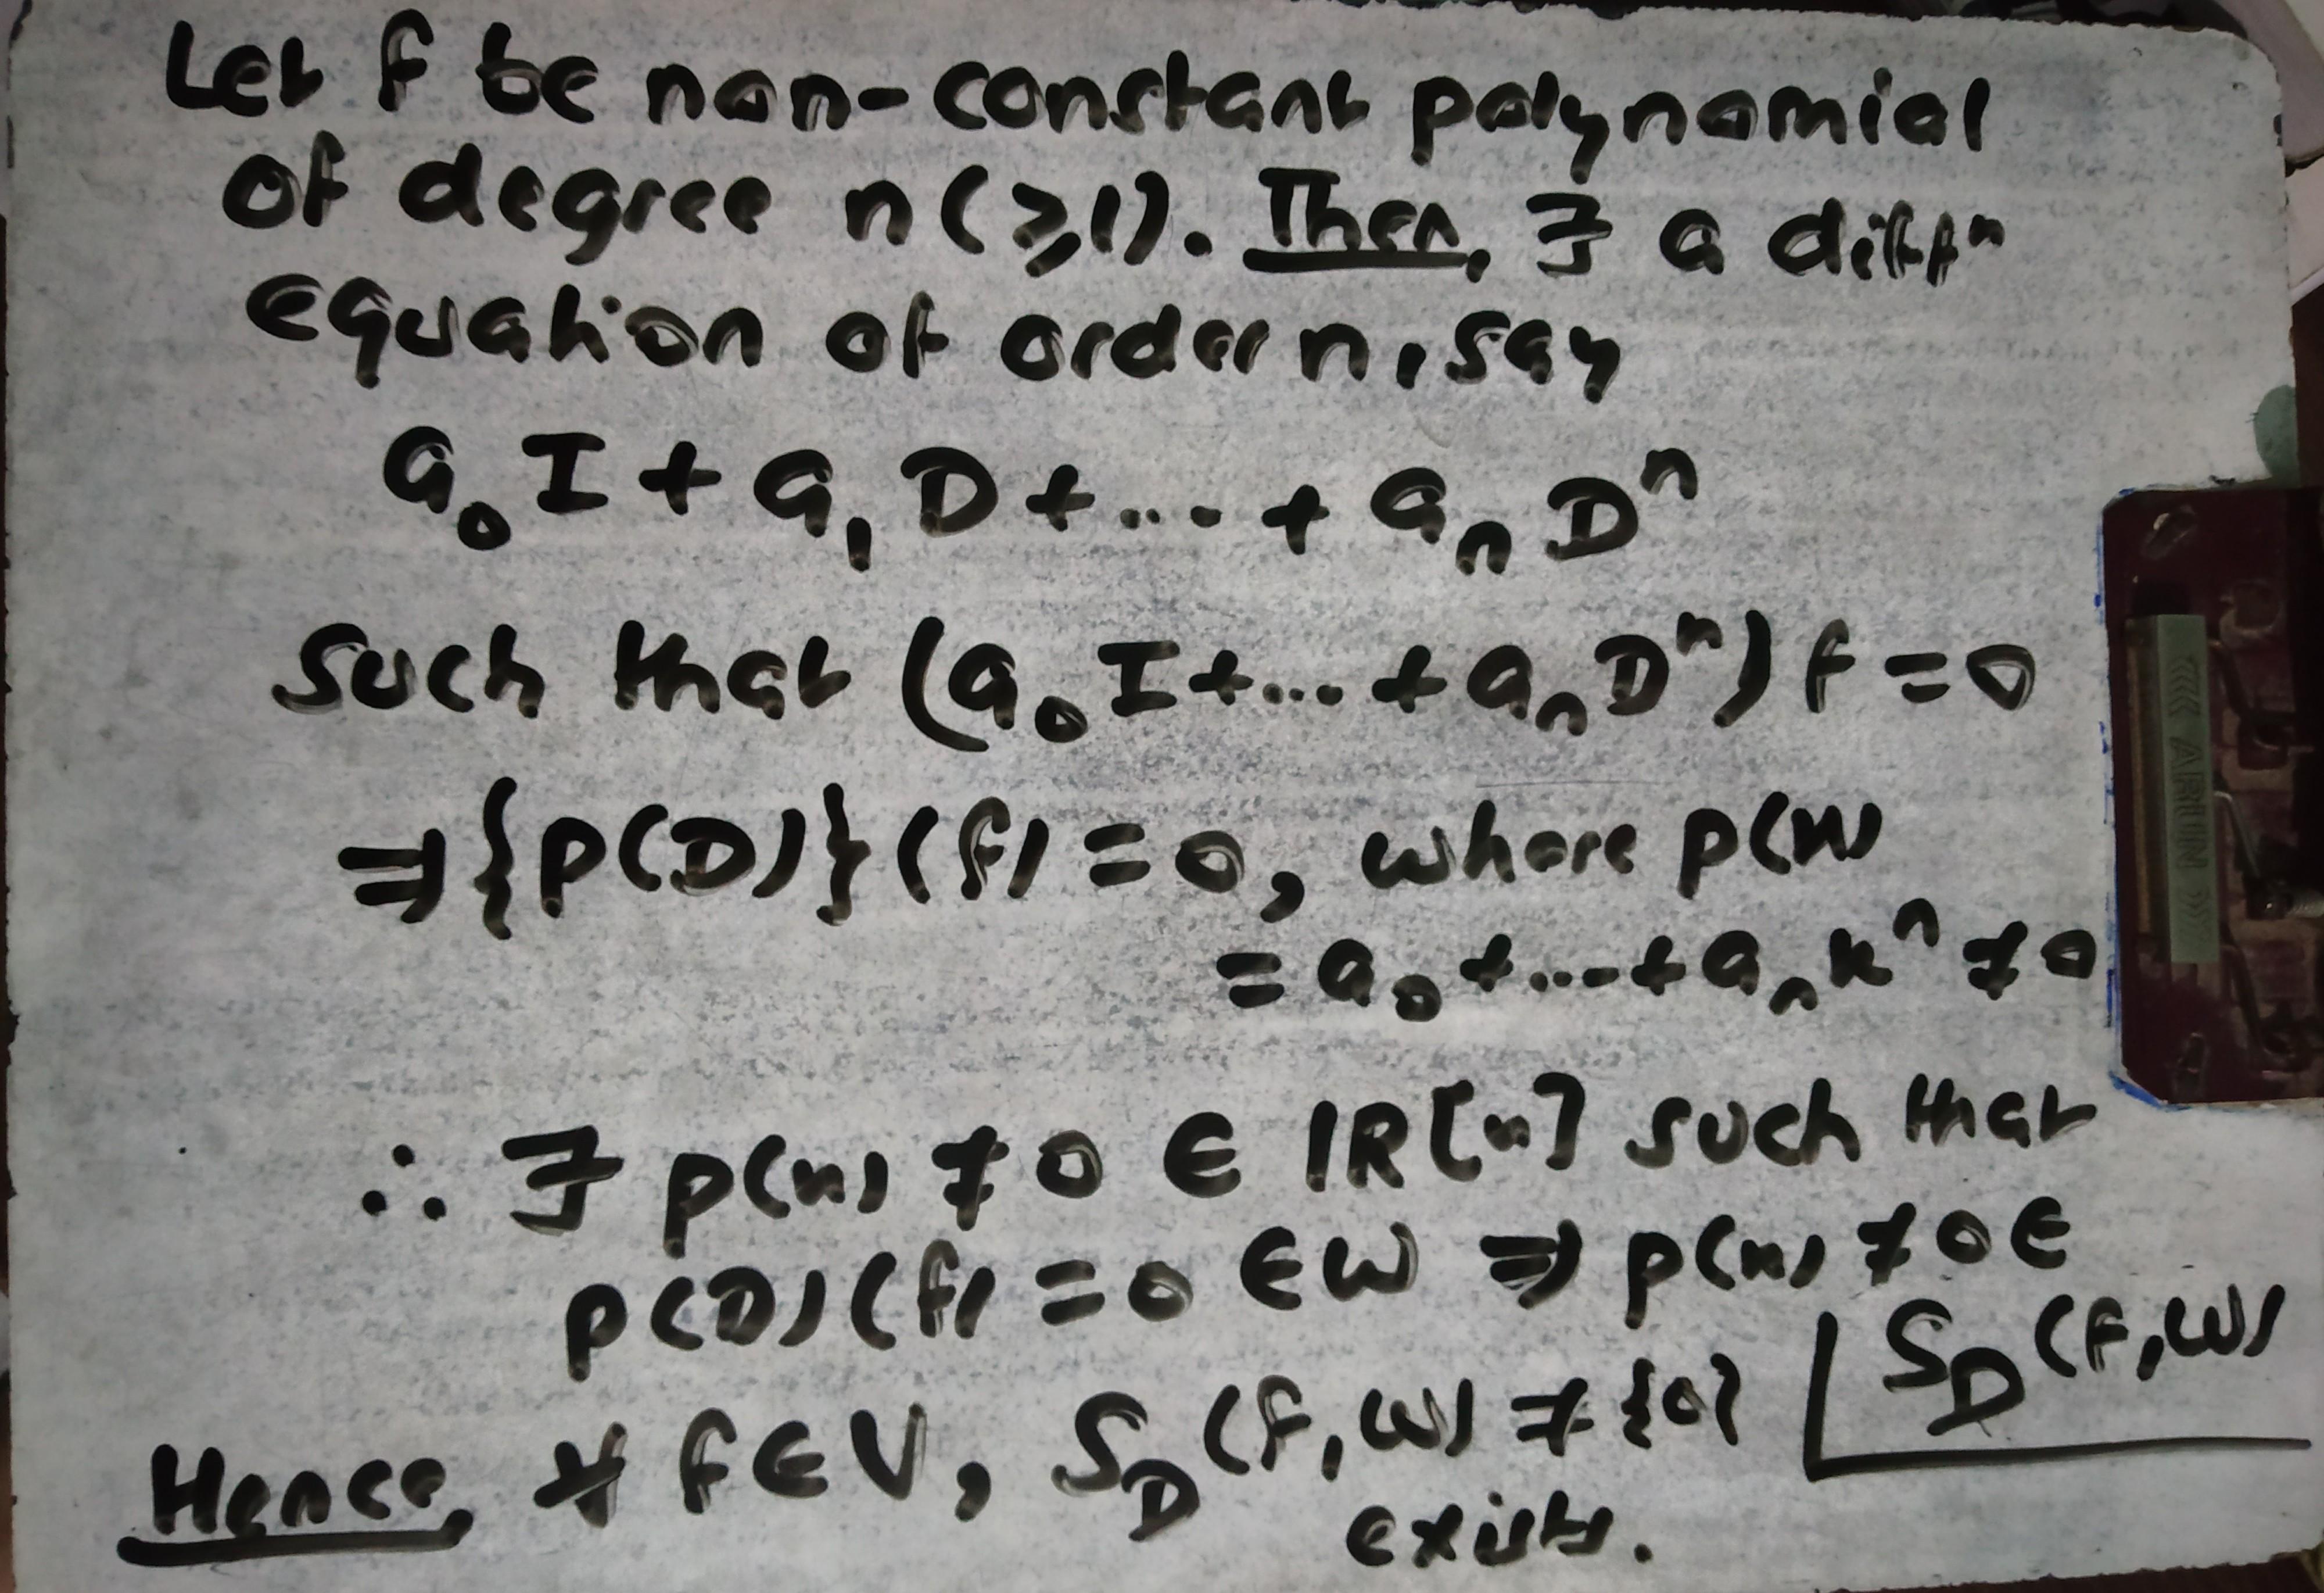 Let f be non-constant polynomial
of degree n(≥1). Then, ∃ a diffⁿ
equation of order n, say
a₀I + a₁D + ... + aₙDⁿ
such that (a₀I+...+aₙDⁿ)f=0
⇒{P(D)}(f)=0, where p(x)
= a₀+...+aₙxⁿ ≠0
∴ ∃ p(x) ≠ 0 ∈ IR[x] such that
p(D)(f)=0 ∈W ⇒ p(x) ≠0∈
S_D(f,W)
Hence, ∀ f∈V, S_D(f,W) ≠ {0}
exists.
<<<< ARUN >>>